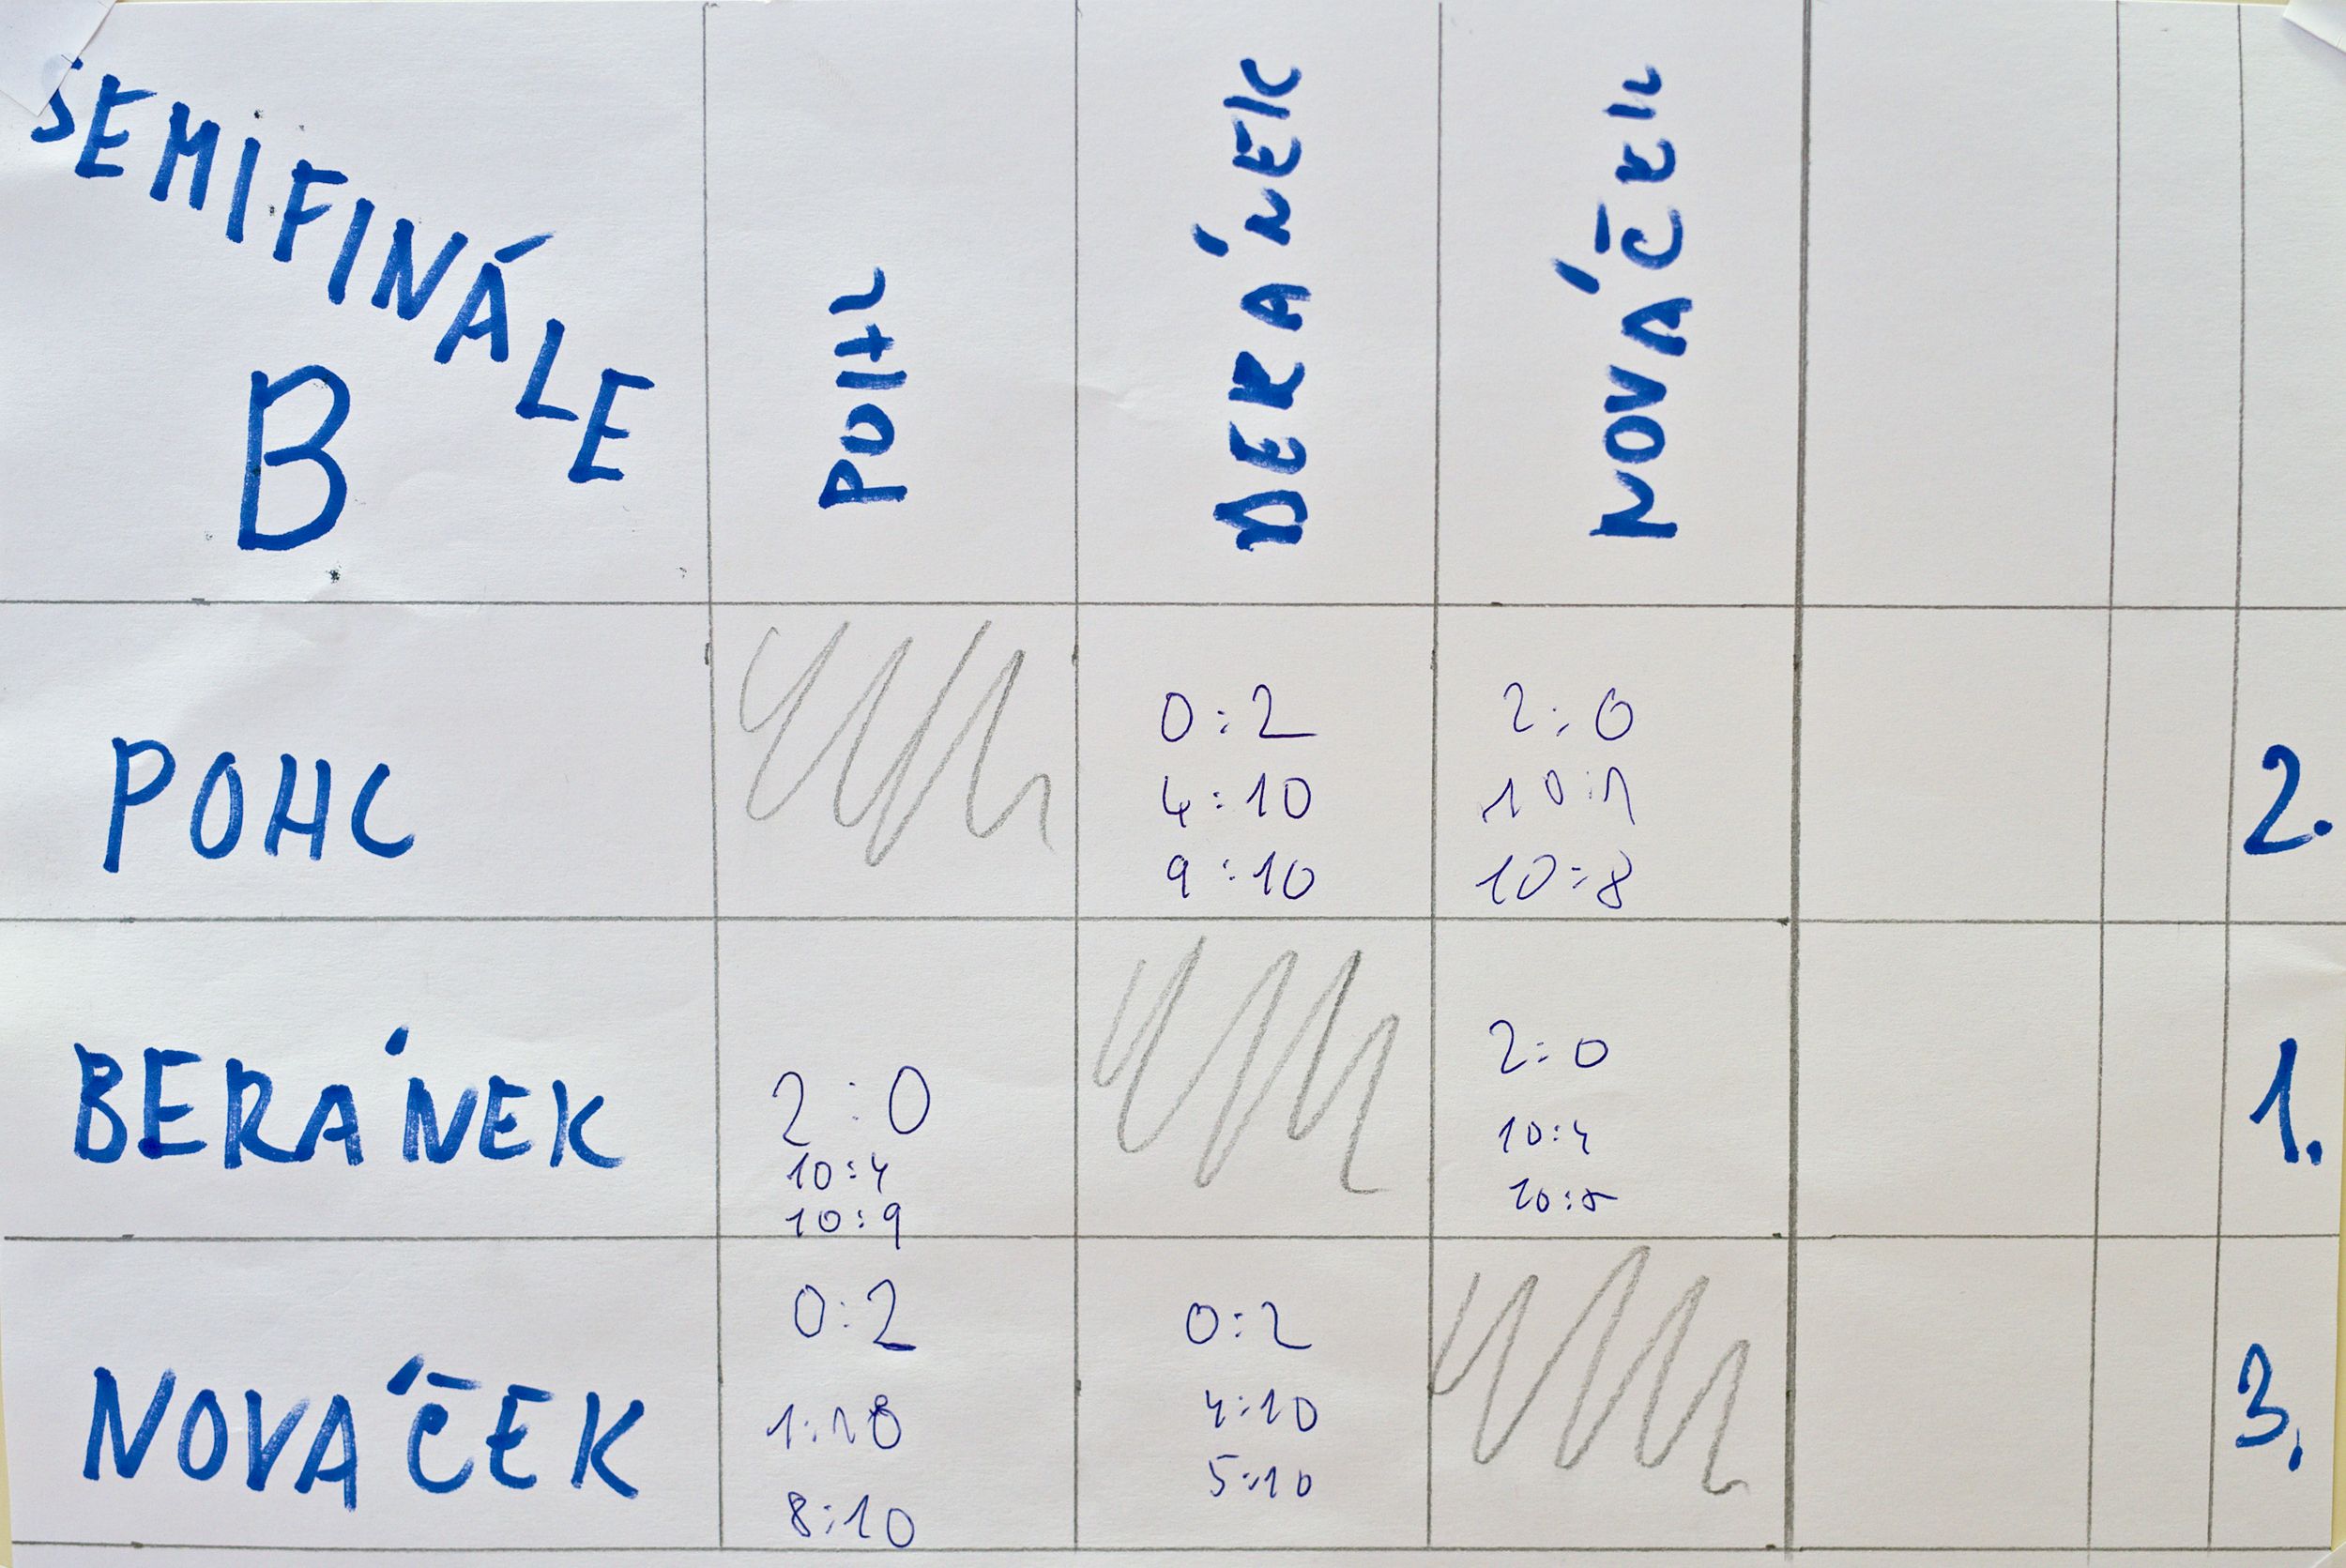 SEMIFINÁLE
B
POHL
BERÁNEK
NOVÁČEK
POHL
0:2
2:0
4:10
10:1
9:10
10:8
2.
BERÁNEK
2:0
2:0
10:4
10:4
10:9
10:5
1.
NOVÁČEK
0:2
0:2
1:10
4:10
8:10
5:10
3.